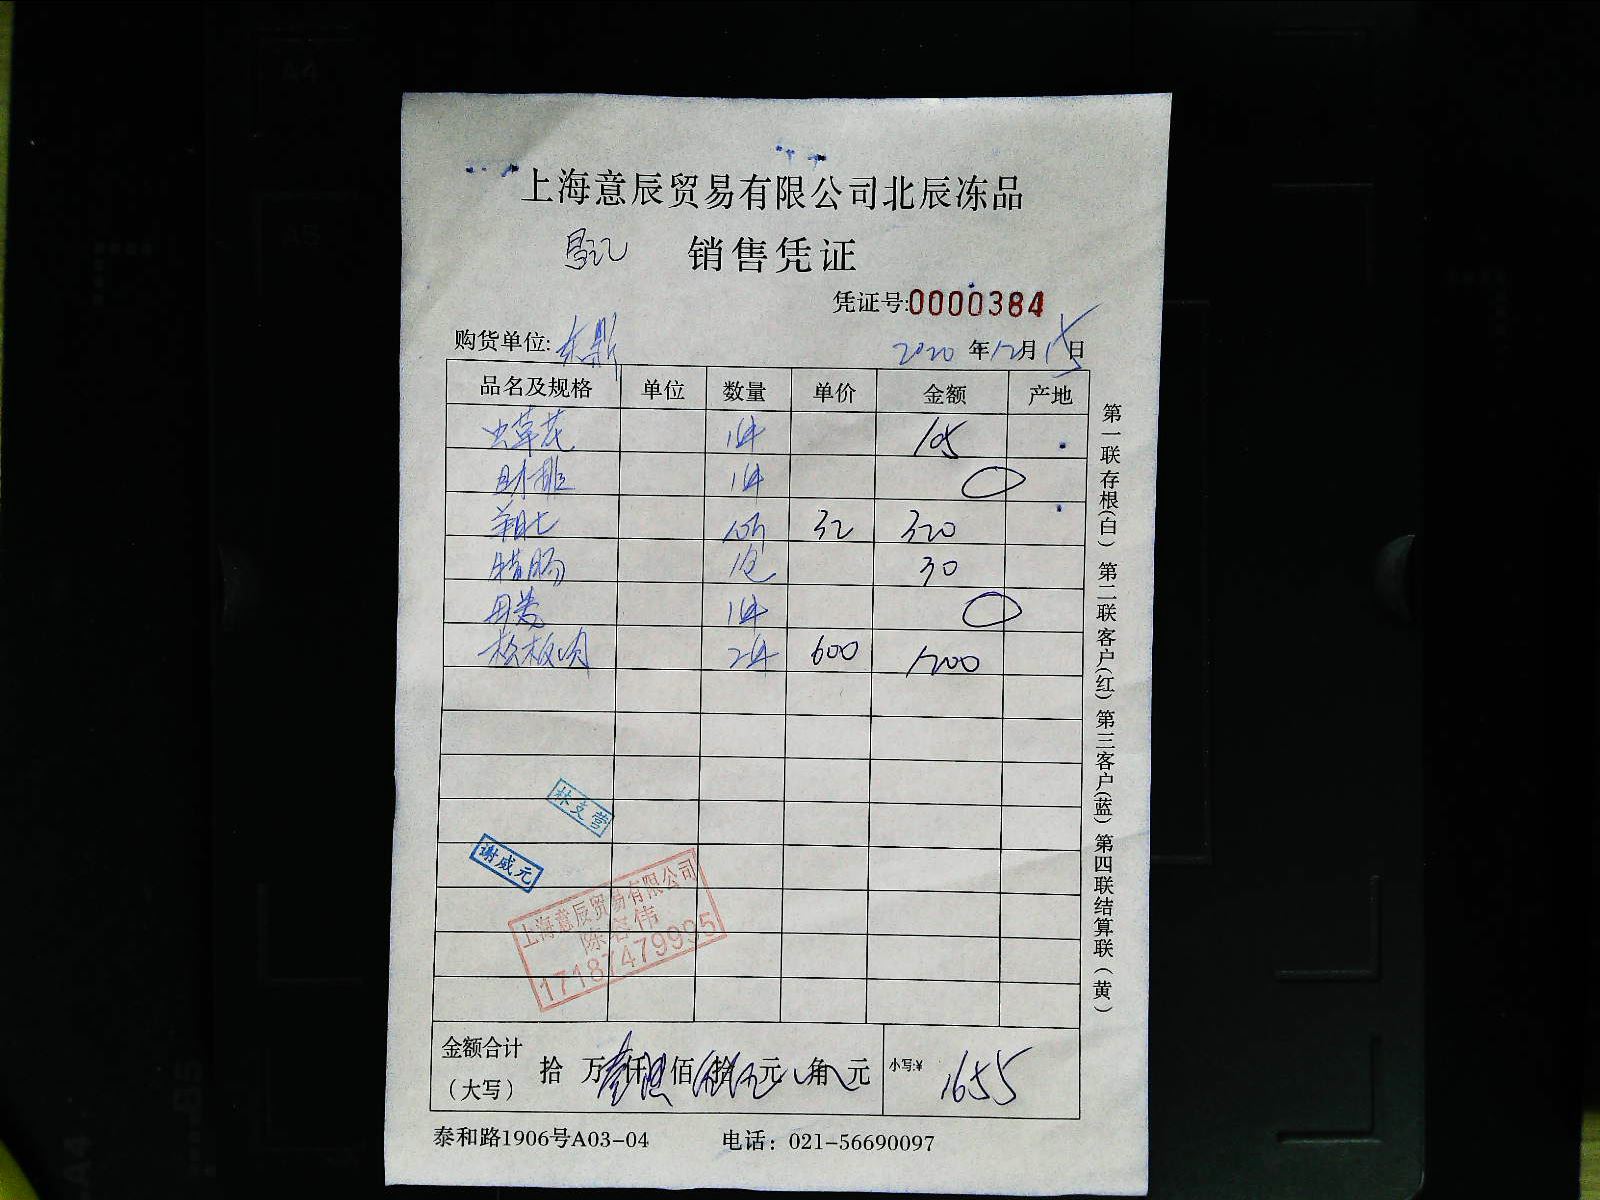 上海意辰贸易有限公司北辰冻品
销售凭证
凭证号:0000384
购货单位:东鼎 2020年12月15日
品名及规格 单位 数量 单价 金额 产地
虫草花 1件 105
1件
羊肚 10斤 32 320
腊肠 1包 30
1件
松板肉 2件 600 1200
林支营
谢威元
上海意辰贸易有限公司
陈容伟
17187479995
金额合计 拾 万 仟 佰 拾 元 角 元 小写:¥ 1655
(大写)
泰和路1906号A03-04 电话: 021-56690097
第一联存根(白) 第二联客户(红) 第三客户(蓝) 第四联结算联(黄)